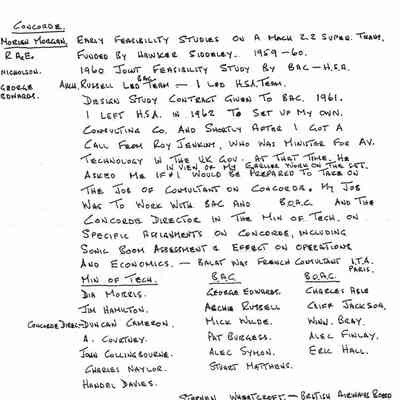 CONCORDE.
MORIEN MORGAN, EARLY FEASIBILITY STUDIES ON A MACH 2.2 SUPER. TRANS,
R.A.E. FUNDED BY HAWKER SIDDELEY. 1959-60.
NICHOLSON. 1960 JOINT FEASIBILITY STUDY BY BAC - H.S.A.
GEORGE EDWARDS. ARCH, RUSSELL LED BAC TEAM - I LED H.S.A. TEAM.
DESIGN STUDY CONTRACT GIVEN TO BAC. 1961.
I LEFT H.S.A. IN 1962 TO SET UP MY OWN.
CONSULTING CO. AND SHORTLY AFTER I GOT A
CALL FROM ROY JENKINS, WHO WAS MINISTER FOR AV.
TECHNOLOGY IN THE UK GOV. AT THAT TIME. HE
IN VIEW OF MY EARLIER WORK ON THE SST.
ASKED ME IF I WOULD BE PREPARED TO TAKE ON
THE JOB OF CONSULTANT ON CONCORDE. MY JOB
WAS TO WORK WITH BAC AND B.O.A.C. AND THE
CONCORDE DIRECTOR IN THE MIN OF TECH. ON
SPECIFIC ASSIGNMENTS ON CONCORDE, INCLUDING
SONIC BOOM ASSESSMENT & EFFECT ON OPERATIONS
AND ECONOMICS. - BALAT WAS FRENCH CONSULTANT I.T.A. PARIS.
MIN OF TECH. B.A.C. B.O.A.C.
DIA MORRIS. GEORGE EDWARDS. CHARLES ABLE
JIM HAMILTON. ARCHIE RUSSELL CLIFF JACKSON,
CONCORDE DIREC- DUNCAN CAMERON, MICK WILDE. WINN. BRAY.
A. COURTNEY. PAT BURGESS. ALEC FINLAY.
JOHN COLLINGBOURNE. ALEC SYMON. ERIC HALL.
CHARLES NAYLOR. STUART MATTHEWS.
HANDEL DAVIES.
STEPHEN WHEATCROFT - BRITISH AIRWAYS BOARD